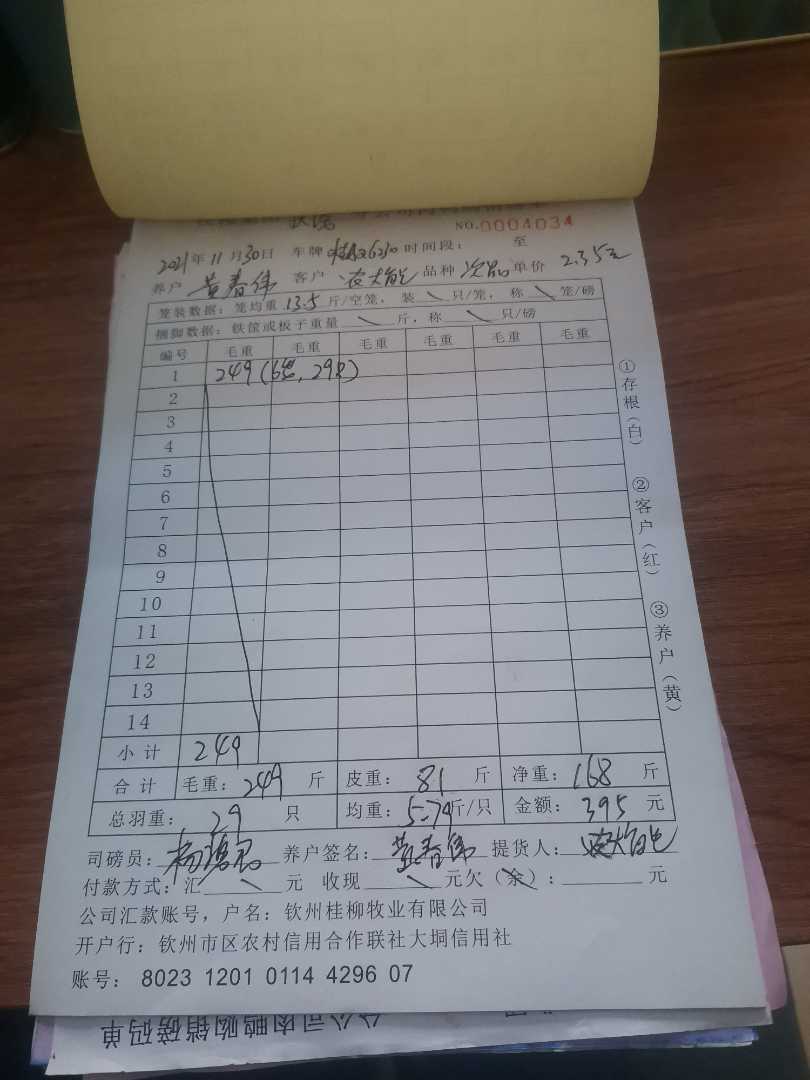 NO.0004034
2021年11月30日 车牌 时间段： 至
养户 黄春伟 客户 农大能 品种 次品 单价 2.35元
笼装数据：笼均重 13.5 斤/空笼，装 \ 只/笼，称 \ 笼/磅
捆脚数据：铁筐或板子重量 \ 斤，称 \ 只/磅
编号 毛重 毛重 毛重 毛重 毛重 毛重
1 249(6笼,29只)
2
3
4
5
6
7
8
9
10
11
12
13
14
小计 249
合计 毛重：249 斤 皮重：81 斤 净重：168 斤
总羽重：29 只 均重：5.79斤/只 金额：395 元
司磅员： 养户签名：黄春伟 提货人：农大能
付款方式：汇 \ 元 收现 \ 元欠（余）： 元
公司汇款账号，户名：钦州桂柳牧业有限公司
开户行：钦州市区农村信用合作联社大垌信用社
账号：8023 1201 0114 4296 07
①存根（白）
②客户（红）
③养户（黄）
分公司肉鸭购销磅码单